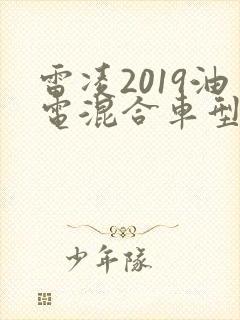 雷凌2019油
電混合車型
少年隊